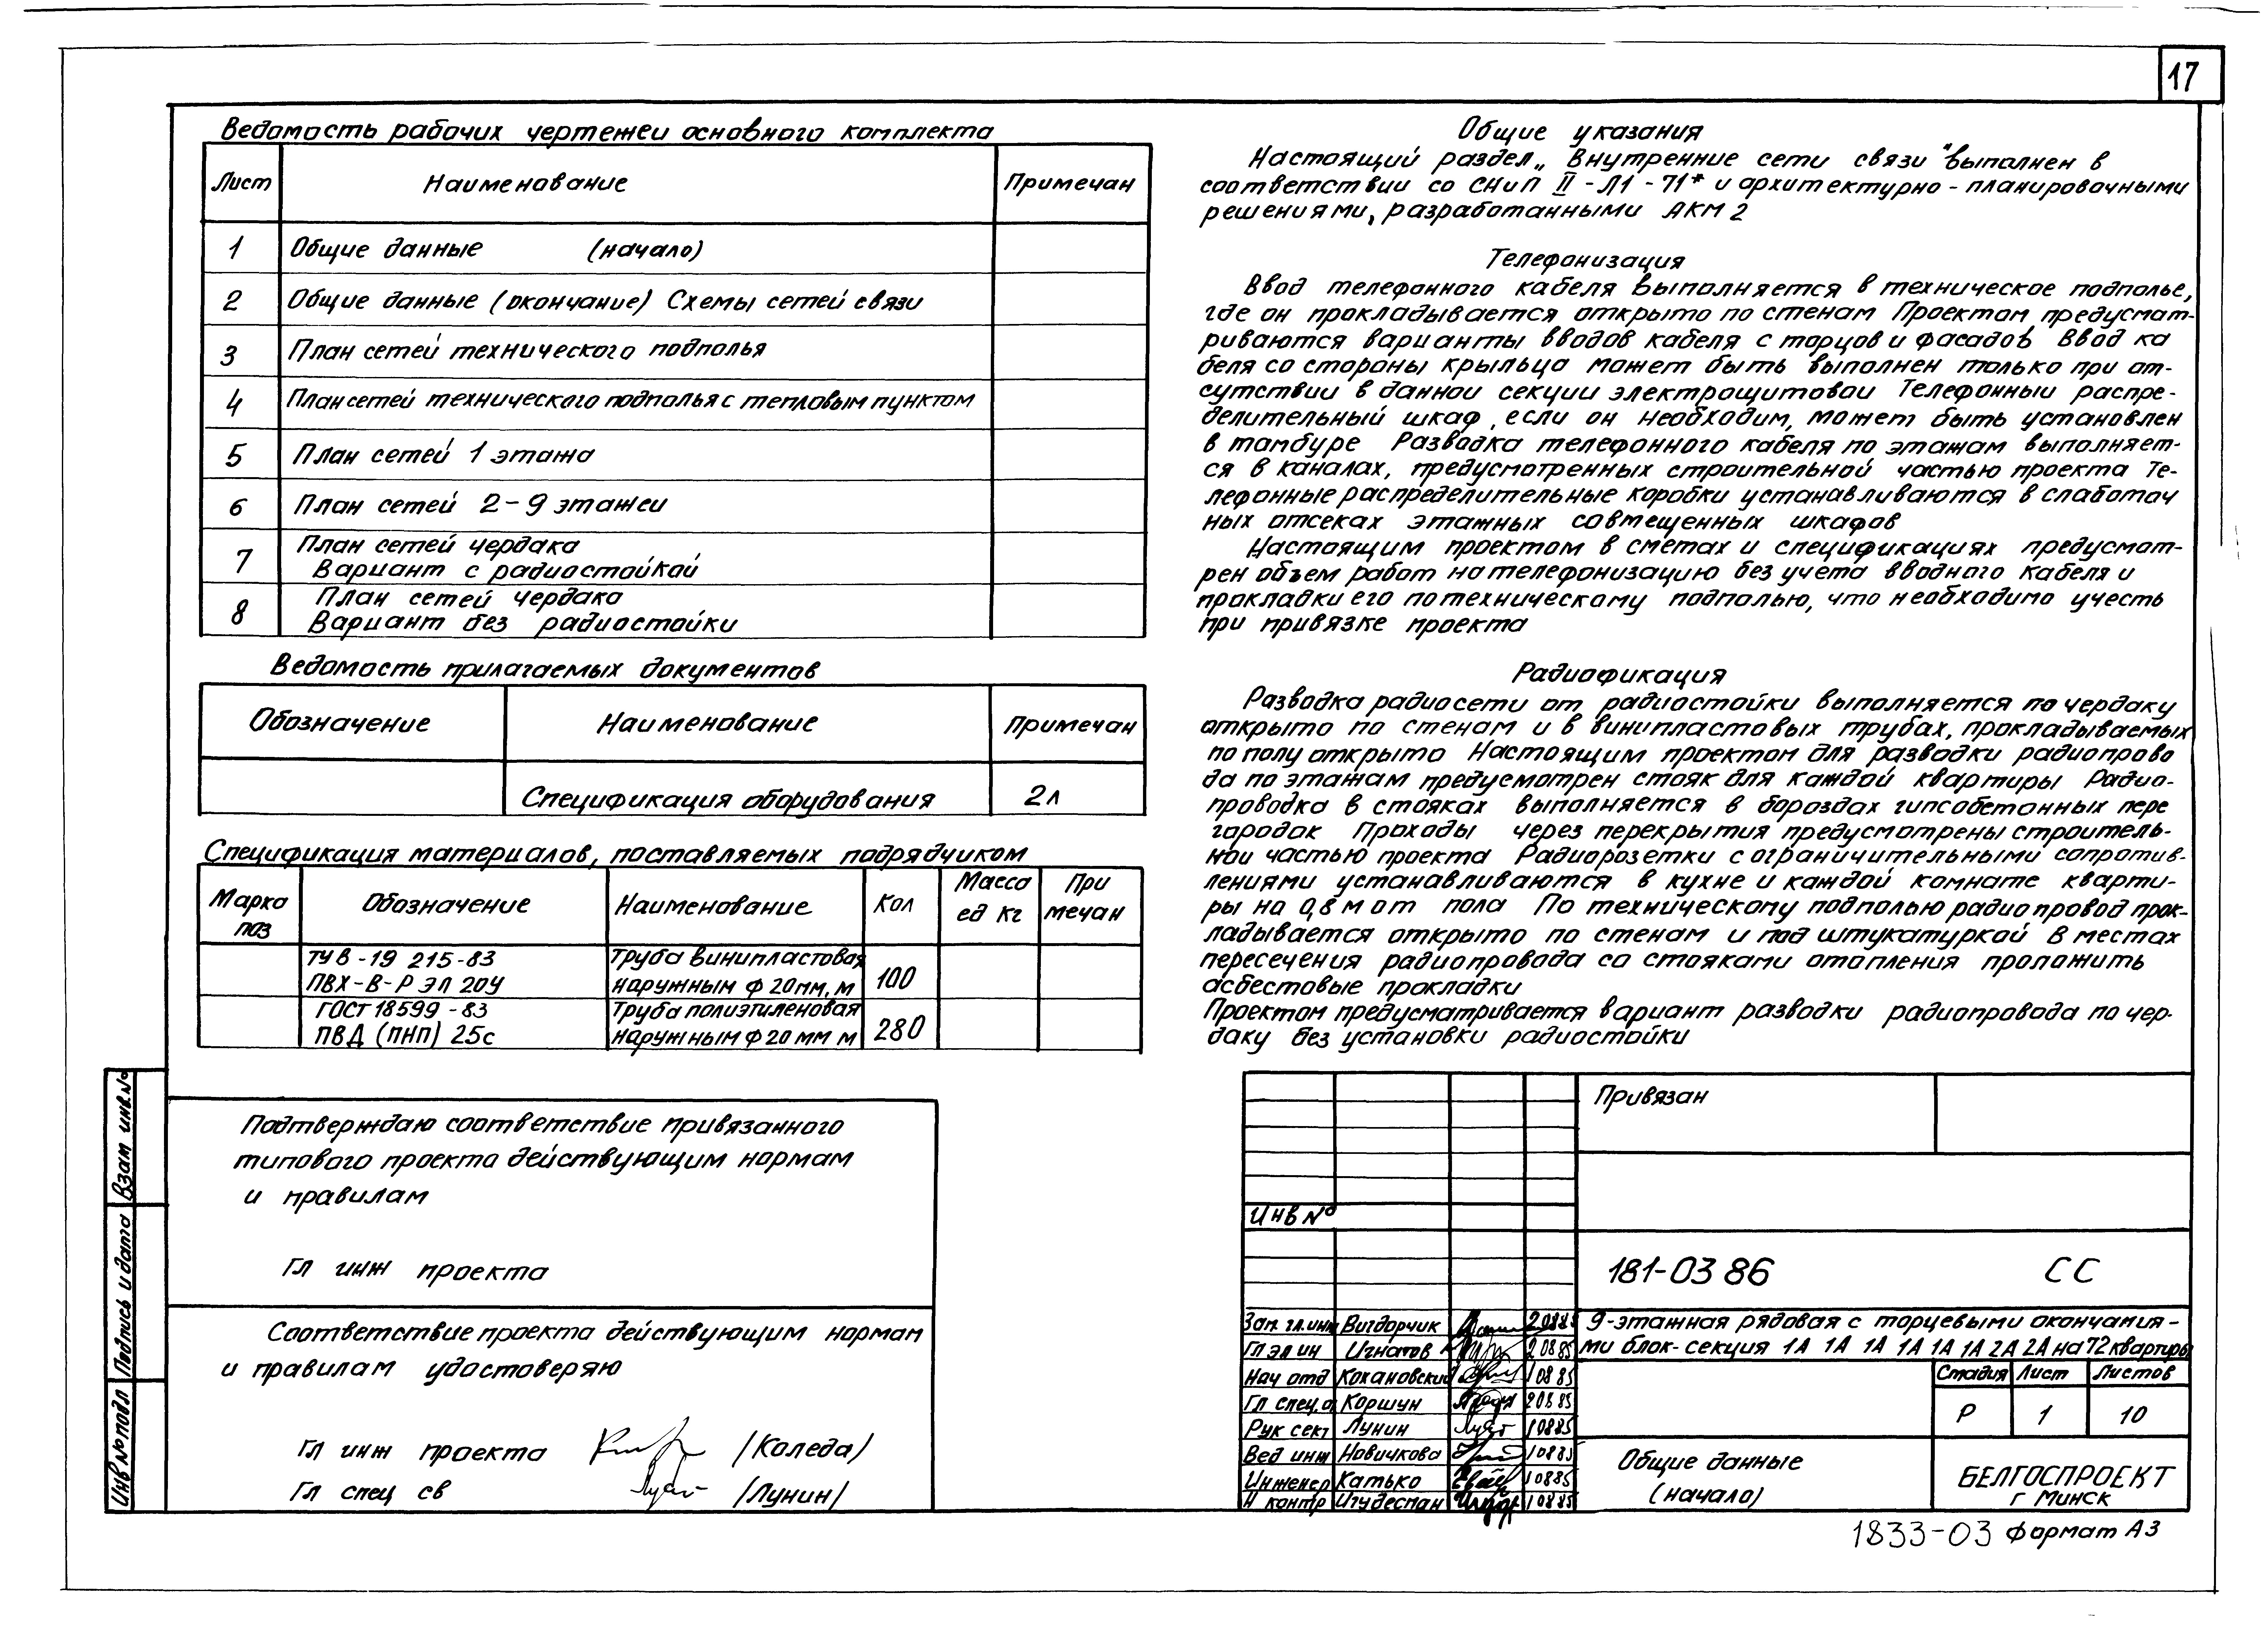 17
Ведомость рабочих чертежеи основного комплекта
Лист Наименование Примечан
1 Общие данные (начало)
2 Общие данные (окончание) Схемы сетей связи
3 План сетей технического подполья
4 План сетей технического подполья с тепловым пунктом
5 План сетей 1 этажа
6 План сетей 2-9 этажеи
7 План сетей чердака
Вариант с радиостойкой
8 План сетей чердака
Вариант без радиостойки
Ведомость прилагаемых документов
Обозначение Наименование Примечан
Спецификация оборудования 2л
Спецификация материалов, поставляемых подрядчиком
Марка поз Обозначение Наименование Кол Масса ед кг При мечан
ТУ 6-19 215-83 Труба винипластовая
ПВХ-В-Р ЭЛ 20У наружным ф 20мм, м 100
ГОСТ 18599-83 Труба полиэтиленовая
ПВД (ПНП) 25с наружным ф 20 мм м 280
Подтверждаю соответствие привязанного
типового проекта действующим нормам
и правилам
Гл инж проекта
Соответствие проекта действующим нормам
и правилам удостоверяю
Гл инж проекта /Коледа/
Гл спец св /Лунин/
Взам инв.№
Подпись и дата
Инв № подл
Общие указания
Настоящий раздел „Внутренние сети связи" выполнен в
соответствии со СНиП II-Л1-71* и архитектурно-планировочными
решениями, разработанными АКМ 2
Телефонизация
Ввод телефонного кабеля выполняется в техническое подполье,
где он прокладывается открыто по стенам Проектом предусмат-
риваются варианты вводов кабеля с торцов и фасадов Ввод ка
беля со стороны крыльца может быть выполнен только при от-
сутствии в даннои секции электрощитовои Телефонныи распре-
делительный шкаф, если он необходим, может быть установлен
в тамбуре Разводка телефонного кабеля по этажам выполняет-
ся в каналах, предусмотренных строительной частью проекта Те-
лефонные распределительные коробки устанавливаются в слаботоч
ных отсеках этажных совмещенных шкафов
Настоящим проектом в сметах и спецификациях предусмот-
рен объем работ на телефонизацию без учета вводного кабеля и
прокладки его по техническому подполью, что необходимо учесть
при привязке проекта
Радиофикация
Разводка радиосети от радиостойки выполняется по чердаку
открыто по стенам и в винипластовых трубах, прокладываемых
по полу открыто Настоящим проектом для разводки радиопрово
да по этажам предусмотрен стояк для каждой квартиры Радио-
проводка в стояках выполняется в бороздах гипсобетонных пере
городок Проходы через перекрытия предусмотрены строитель-
нои частью проекта Радиорозетки с ограничительными сопротив-
лениями устанавливаются в кухне и каждой комнате кварти-
ры на 0,8 м от пола По техническому подполью радиопровод прок-
ладывается открыто по стенам и под штукатуркой В местах
пересечения радиопровода со стояками отопления проложить
асбестовые прокладки
Проектом предусматривается вариант разводки радиопровода по чер-
даку без установки радиостойки
Привязан
Инв №
181-03 86 СС
Зам. гл. инж Вигдорчик 20885
Гл эл ин Игнатов 20885
Нач отд Кохановский 10885
Гл спец. Коршун 20885
Рук сект Лунин 10885
Вед инж Новичкова 10885
Инженер Катько 10885
Н контр Игудесман 10885
9-этажная рядовая с торцевыми окончания-
ми блок-секция 1А 1А 1А 1А 1А 1А 1А 2А 2А на 72 квартиры
Стадия Лист Листов
Р 1 10
Общие данные
(начало)
БЕЛГОСПРОЕКТ
г Минск
1833-03 Формат А3